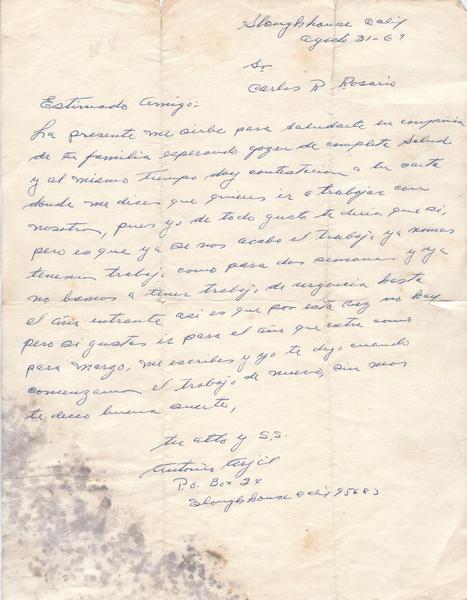 Sloughhouse Calif
Agosto 31-69
Sr
Carlos R Rosario
Estimado Amigo:
La presente me sirbe para saludarte en compañia
de tu familia esperando gozen de complete Salud
y al mismo tiempo doy contestacion a tu carta
donde me dices que quieres ir a trabajar con
nosotros, pues yo de todo gusto te diria que si,
pero es que ya se nos acabo el trabajo ya nomas
tenemos trabajo como para dos semanas y ya
no bamos a tener trabajo de urgencia hasta
el año entrante asi es que por esta vez no hay
pero si gustas ir para el año que entra como
para marzo, me escribes y yo te digo cuando
comenzamos el trabajo de nuevo, sin mas
te deceo buena suerte,
tu atto y S.S.
Antonio
P.O. Box 24
Sloughhouse Calif 95683